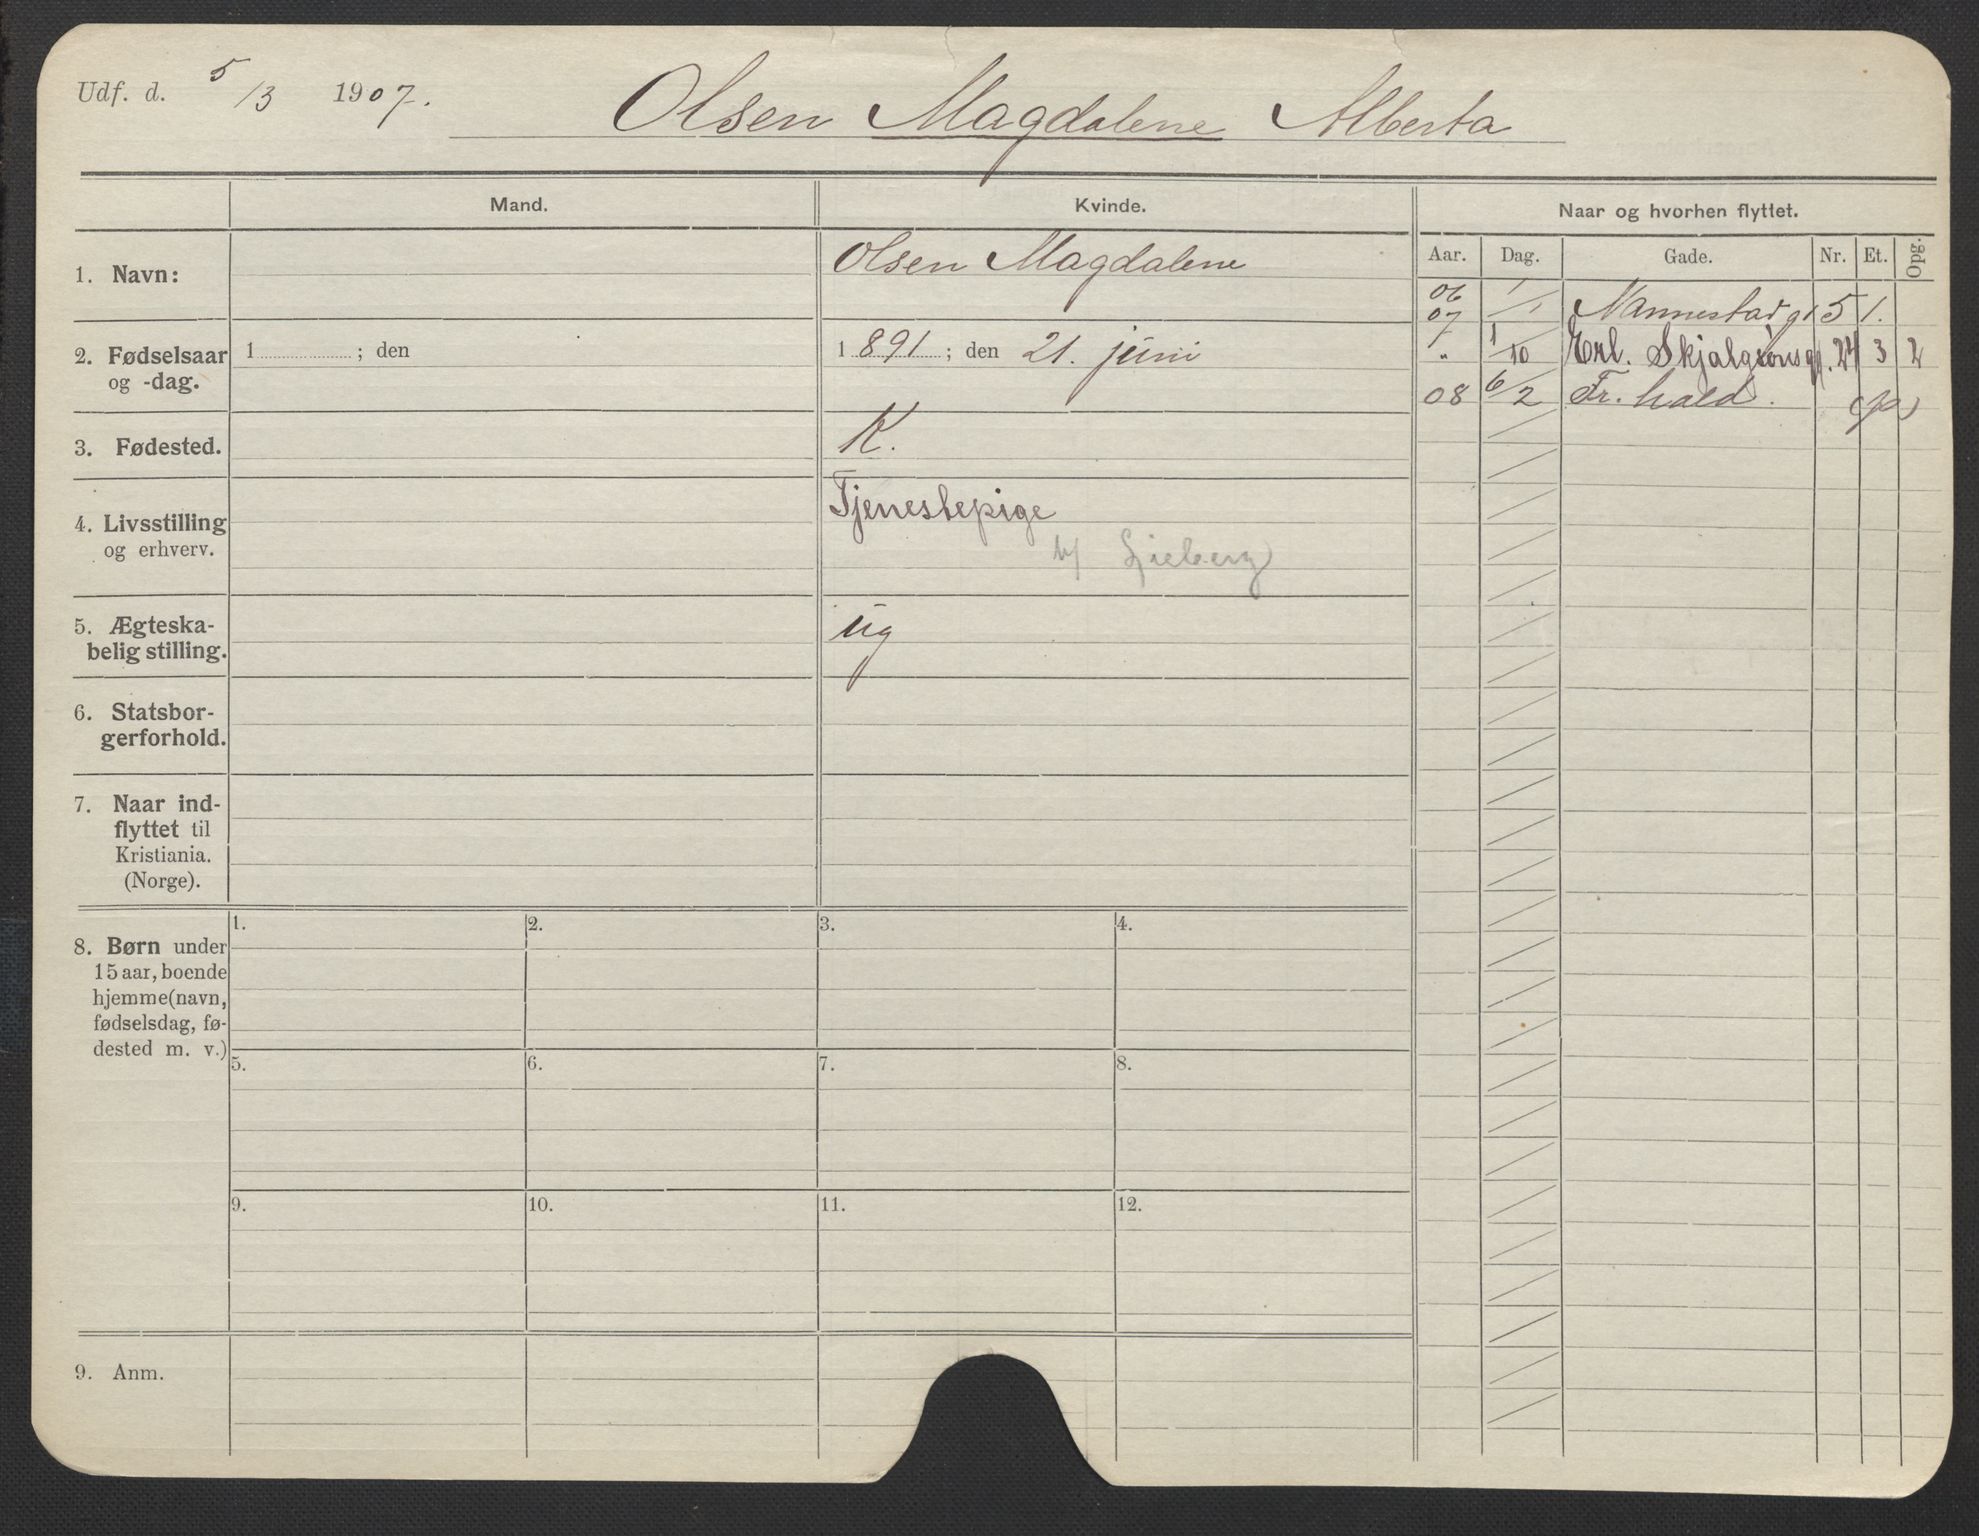 Udf. d. 5/3 1907.
Olsen Magdalene Alberta
Mand.
Kvinde.
Naar og hvorhen flyttet.
Aar. Dag. Gade. Nr. Et. Opg.
1. Navn:
Olsen Magdalene
06 1/1
07 Mannestadgt 5 1.
2. Fødselsaar
og -dag.
1 ; den
1 891 ; den 21. juni
" 1/10 Erl. Skjalgsønsgt. 24 3 2
08 6/2 Fr.hald. (po)
3. Fødested.
K.
4. Livsstilling
og erhverv.
Tjenestepige
5. Ægteska-
belig stilling.
ug
6. Statsbor-
gerforhold.
7. Naar ind-
flyttet til
Kristiania.
(Norge).
8. Børn under
15 aar, boende
hjemme (navn,
fødselsdag, fø-
dested m. v.)
1. 2. 3. 4.
5. 6. 7. 8.
9. 10. 11. 12.
9. Anm.